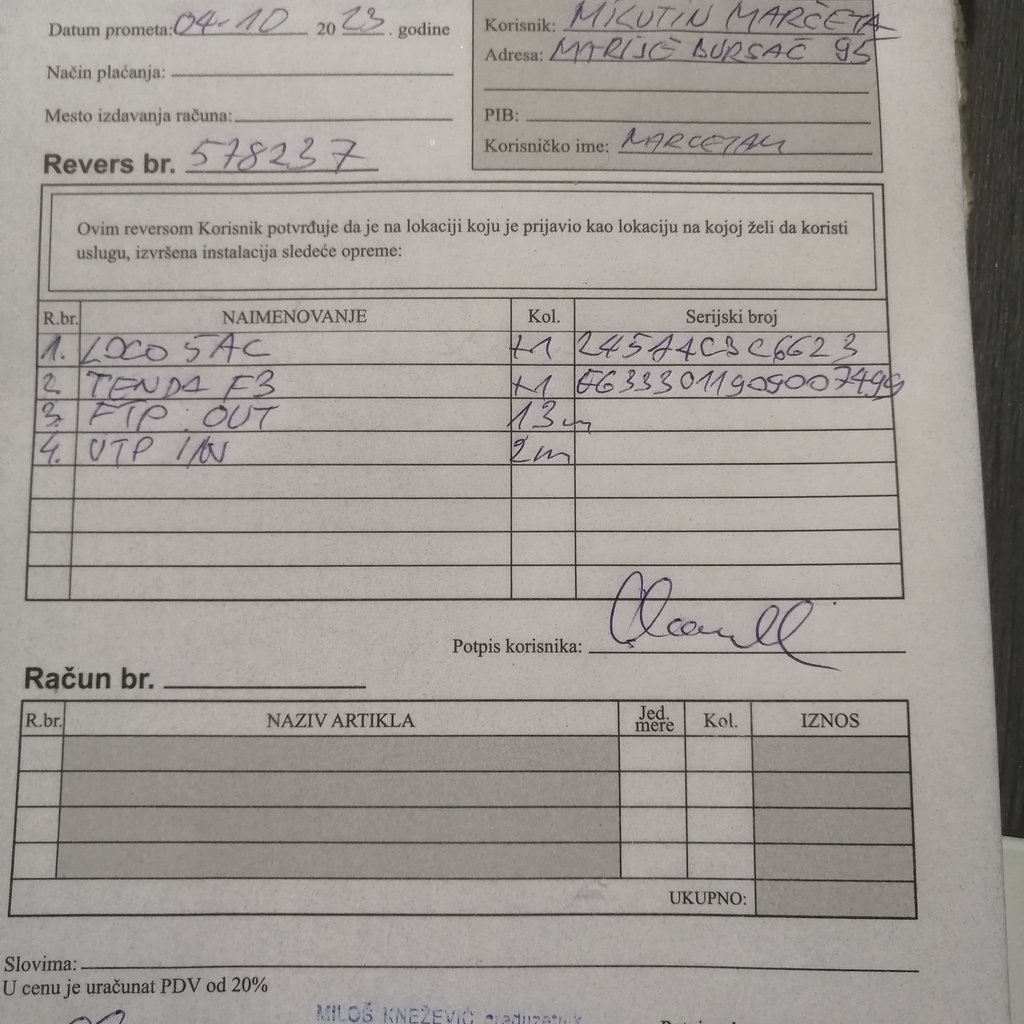 Datum prometa: 04-10 2023. godine
Korisnik: MILUTIN MARČETA
Adresa: MARIJE BURSAĆ 95
Način plaćanja:
Mesto izdavanja računa:
PIB:
Korisničko ime: MARCETAM
Revers br. 578237
Ovim reversom Korisnik potvrđuje da je na lokaciji koju je prijavio kao lokaciju na kojoj želi da koristi
uslugu, izvršena instalacija sledeće opreme:
R.br. NAIMENOVANJE Kol. Serijski broj
1. LOCO 5AC +1 245A4C3C6623
2. TENDA F3 +1 E6333011909007499
3. FTP OUT 13m
4. UTP IN 2m
Potpis korisnika:
Račun br.
R.br. NAZIV ARTIKLA Jed. mere Kol. IZNOS
UKUPNO:
Slovima:
U cenu je uračunat PDV od 20%
MILOŠ KNEŽEVIĆ preduzetnik